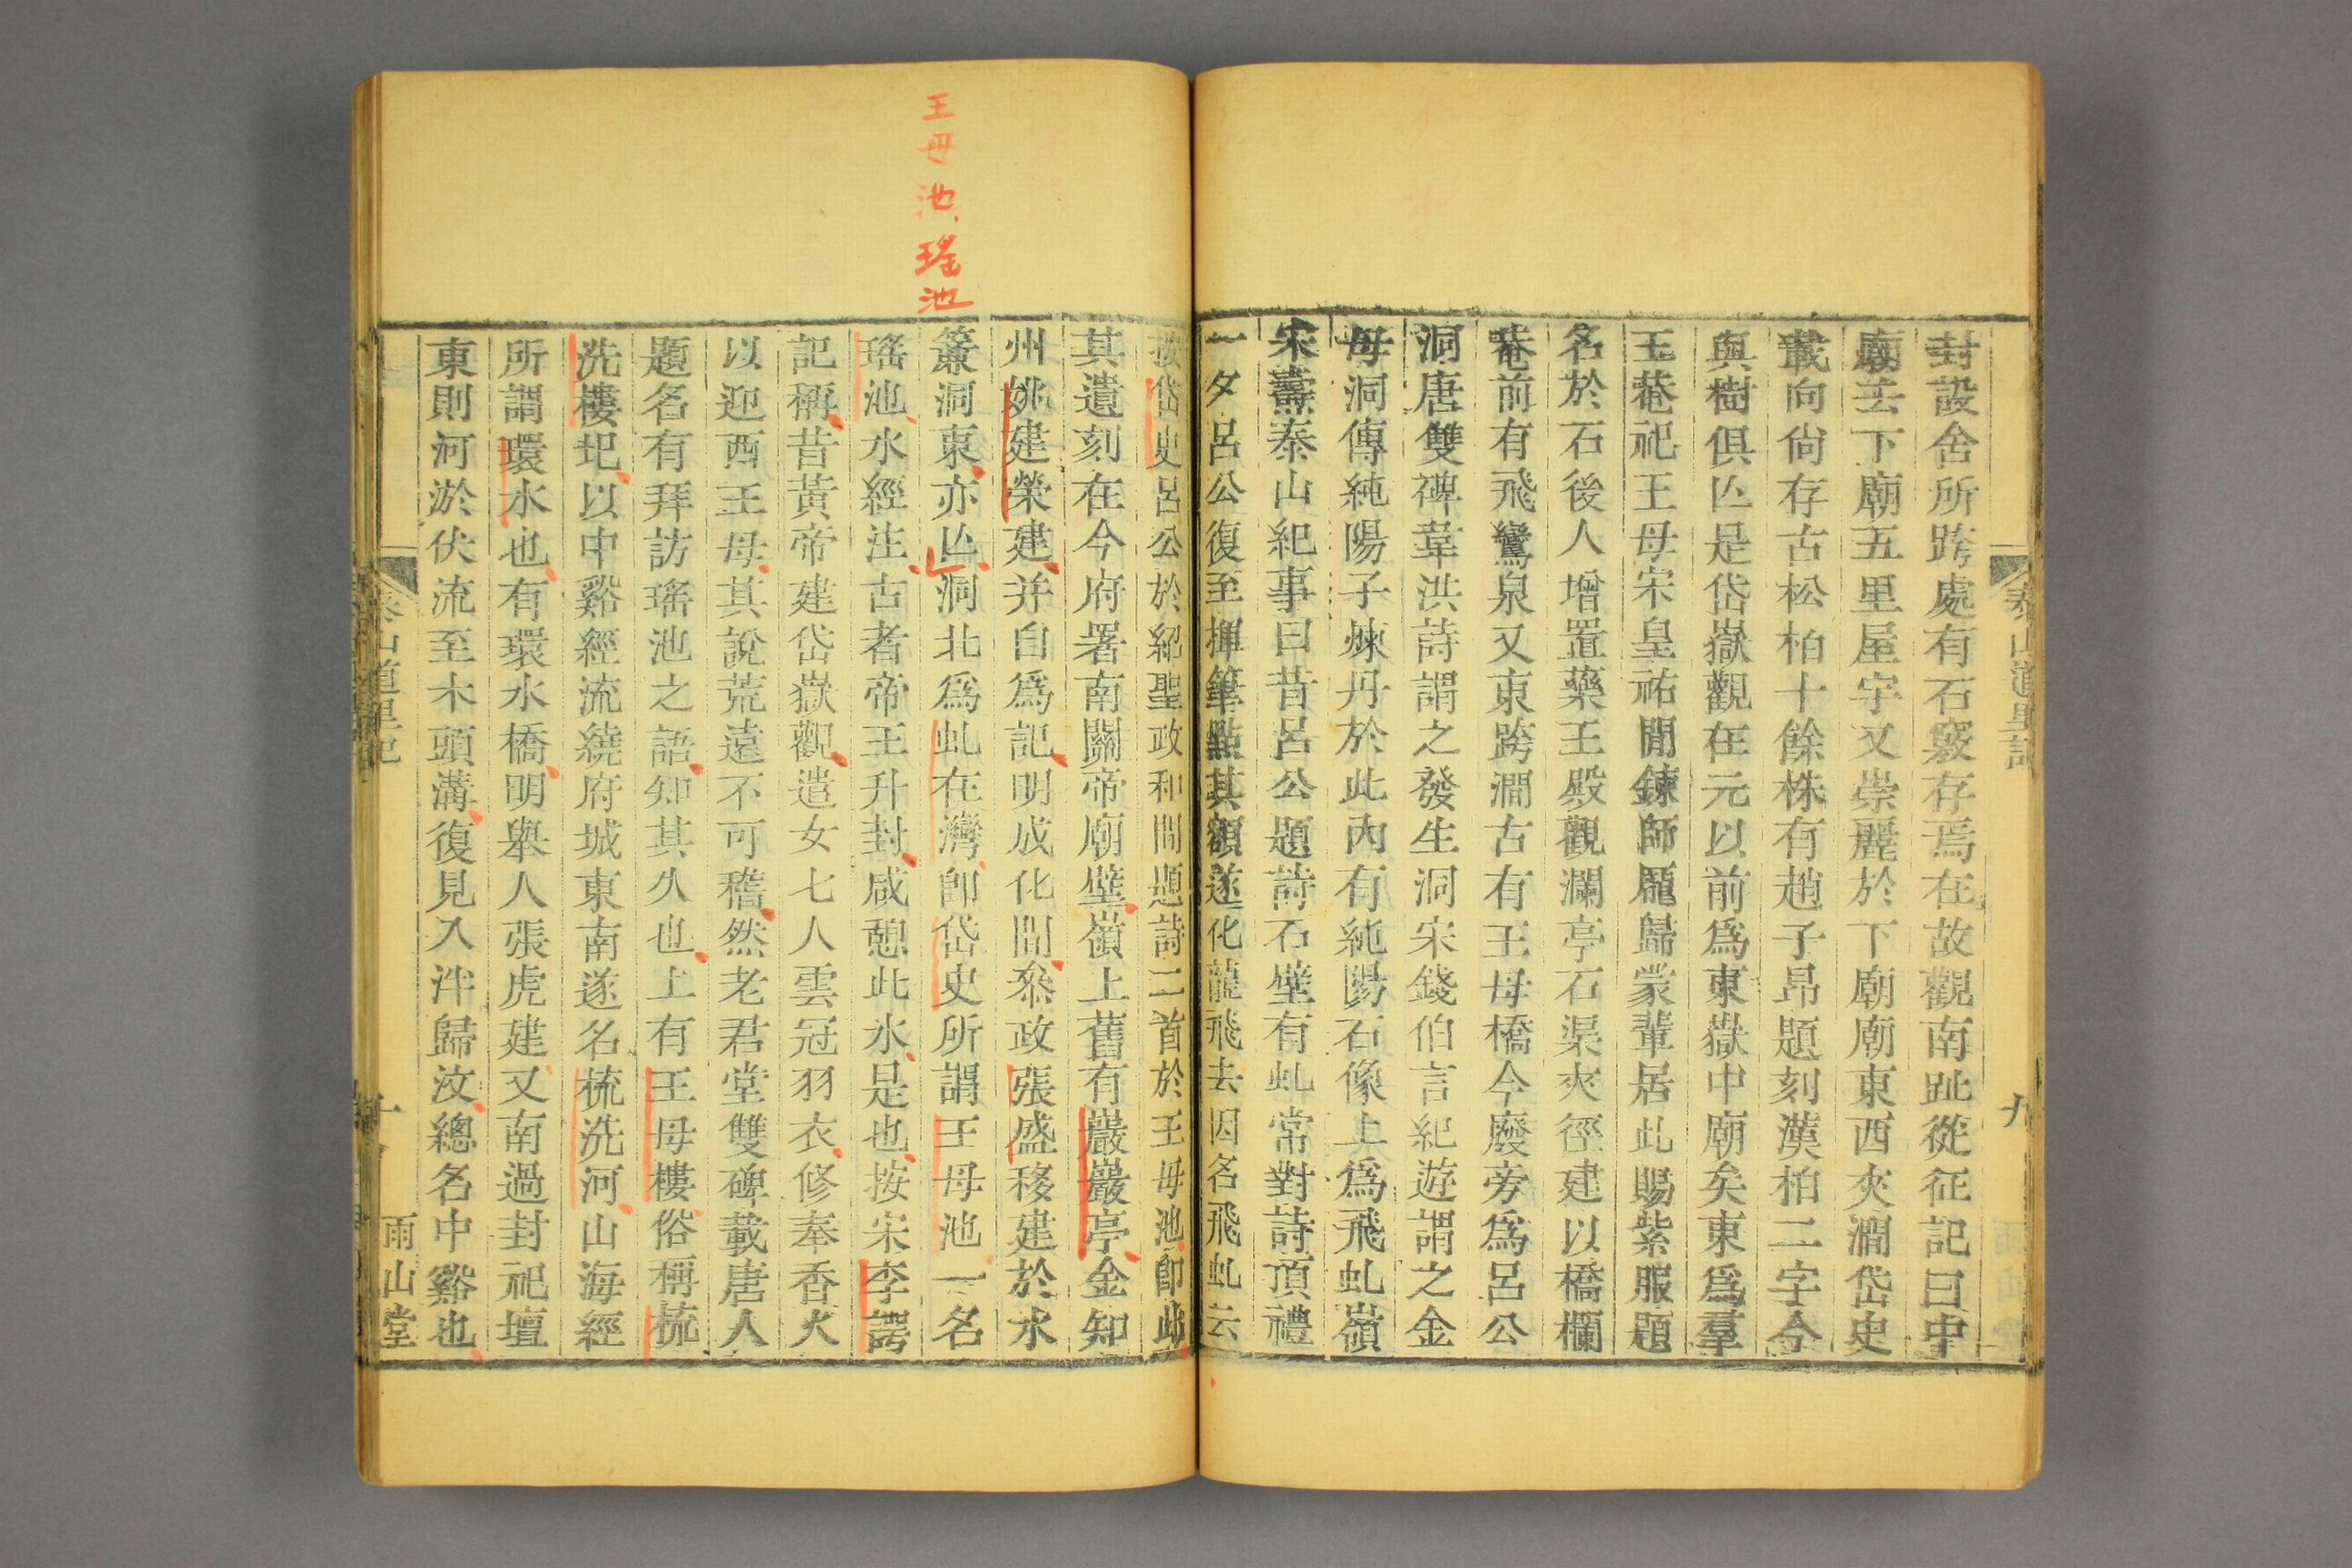 封設舍所跨處有石竅存焉在故觀南趾從征記曰中
廟去下廟五里屋宇又崇麗於下廟廟東西夾澗岱史
載向尙存古松柏十餘株有趙子昂題刻漢柏二字今
與樹俱亾是岱嶽觀在元以前爲東嶽中廟矣東爲羣
玉菴祀王母宋皇祐閒鍊師龎歸蒙輩居此賜紫服題
名於石後人增置藥王殿觀瀾亭石渠夾徑建以橋欄
菴前有飛鸞泉又東跨澗古有王母橋今廢旁爲呂公
洞唐雙碑韋洪詩謂之發生洞宋錢伯言紀遊謂之金
母洞傳純陽子煉丹於此內有純陽石像上爲飛虬嶺
宋燾泰山紀事曰昔呂公題詩石壁有虬常對詩頂禮
一夕呂公復至揮筆點其額遂化龍飛去因名飛虬云
泰山道里記
九
王母池瑤池
按岱史呂公於紹聖政和間題詩二首於王母池卽此
其遺刻在今府署南關帝廟壁嶺上舊有巖巖亭金知
州姚建榮建并自爲記明成化間叅政張盛移建於水
簾洞東亦亾洞北爲虬在灣卽岱史所謂王母池一名
瑤池水經注古者帝王升封咸憩此水是也按宋李諤
記稱昔黃帝建岱嶽觀遣女七人雲冠羽衣修奉香火
以迎西王母其說荒遠不可稽然老君堂雙碑載唐人
題名有拜訪瑤池之語知其久也上有王母樓俗稱梳
洗樓圯以中谿經流繞府城東南遂名梳洗河山海經
所謂環水也有環水橋明舉人張虎建又南過封祀壇
東則河淤伏流至木頭溝復見入泮歸汶總名中谿也
泰山道里記
十
雨山堂